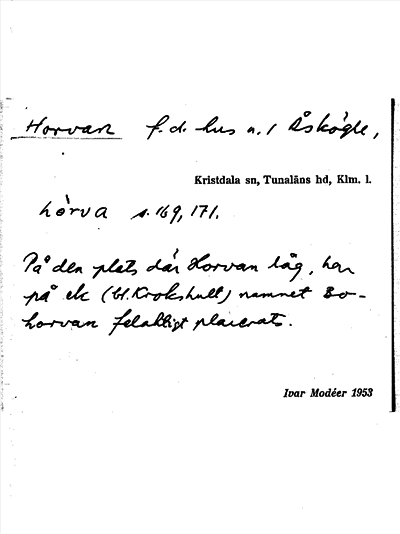 Horvan f.d. hus u. / Åskögle,
Kristdala sn, Tunaläns hd, Klm. l.
hòrva s. 169, 171.
På den plats där Horvan låg, har
på ek (bl. Krokshult) namnet Bo-
horvan felaktigt placerats.
Ivar Modéer 1953